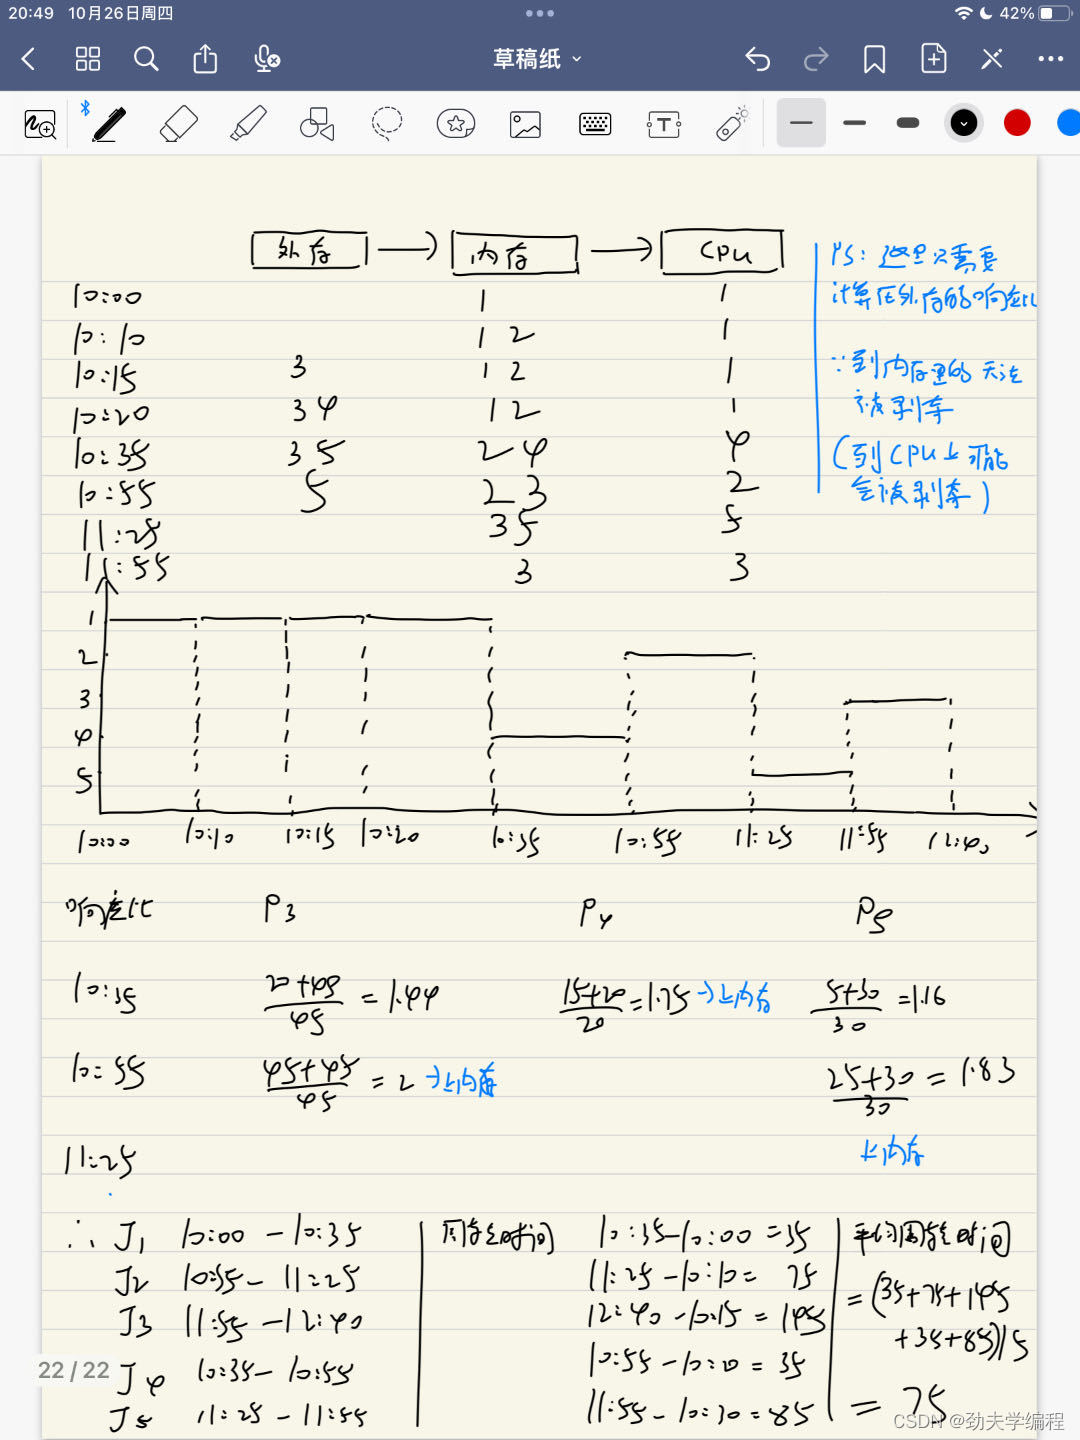 20:49 10月26日周四 42%
草稿纸
外存 内存 CPU
10:00 1 1
10:10 1 2 1
10:15 3 1 2 1
10:20 3 4 1 2 1
10:35 3 5 2 4 4
10:55 5 2 3 2
11:25 3 5 5
11:55 3 3
PS: 这里只需要
计算在外存的响应比
∵到内存里的无法
被剥夺
(到CPU上可能
会被剥夺)
1
2
3
4
5
10:00 10:10 10:15 10:20 10:35 10:55 11:25 11:55 12:40
响应比 P3 P4 P5
10:35 20+45/45 = 1.44 15+20/20 = 1.75 →上内存 5+30/30 = 1.16
10:55 45+45/45 = 2 →上内存 25+30/30 = 1.83
上内存
11:25
∴ J1 10:00 - 10:35 周转时间 10:35-10:00 = 35 平均周转时间
J2 10:55 - 11:25 11:25-10:10 = 75
= (35+75+145
J3 11:55 - 12:40 12:40-10:15 = 145
+35+85)/5
J4 10:35 - 10:55 10:55-10:20 = 35
J5 11:25 - 11:55 11:55-10:30 = 85 = 75
22 / 22
CSDN @劲夫学编程